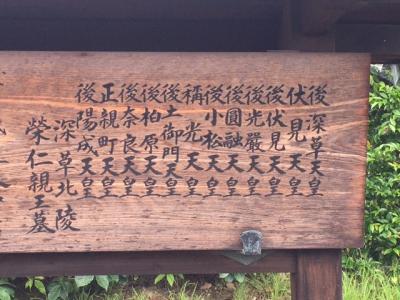 後深草天皇
伏見天皇
後伏見天皇
後光嚴天皇
後圓融天皇
後小松天皇
稱光天皇
後土御門天皇
後柏原天皇
後奈良天皇
正親町天皇
後陽成天皇
深草北陵
榮仁親王墓